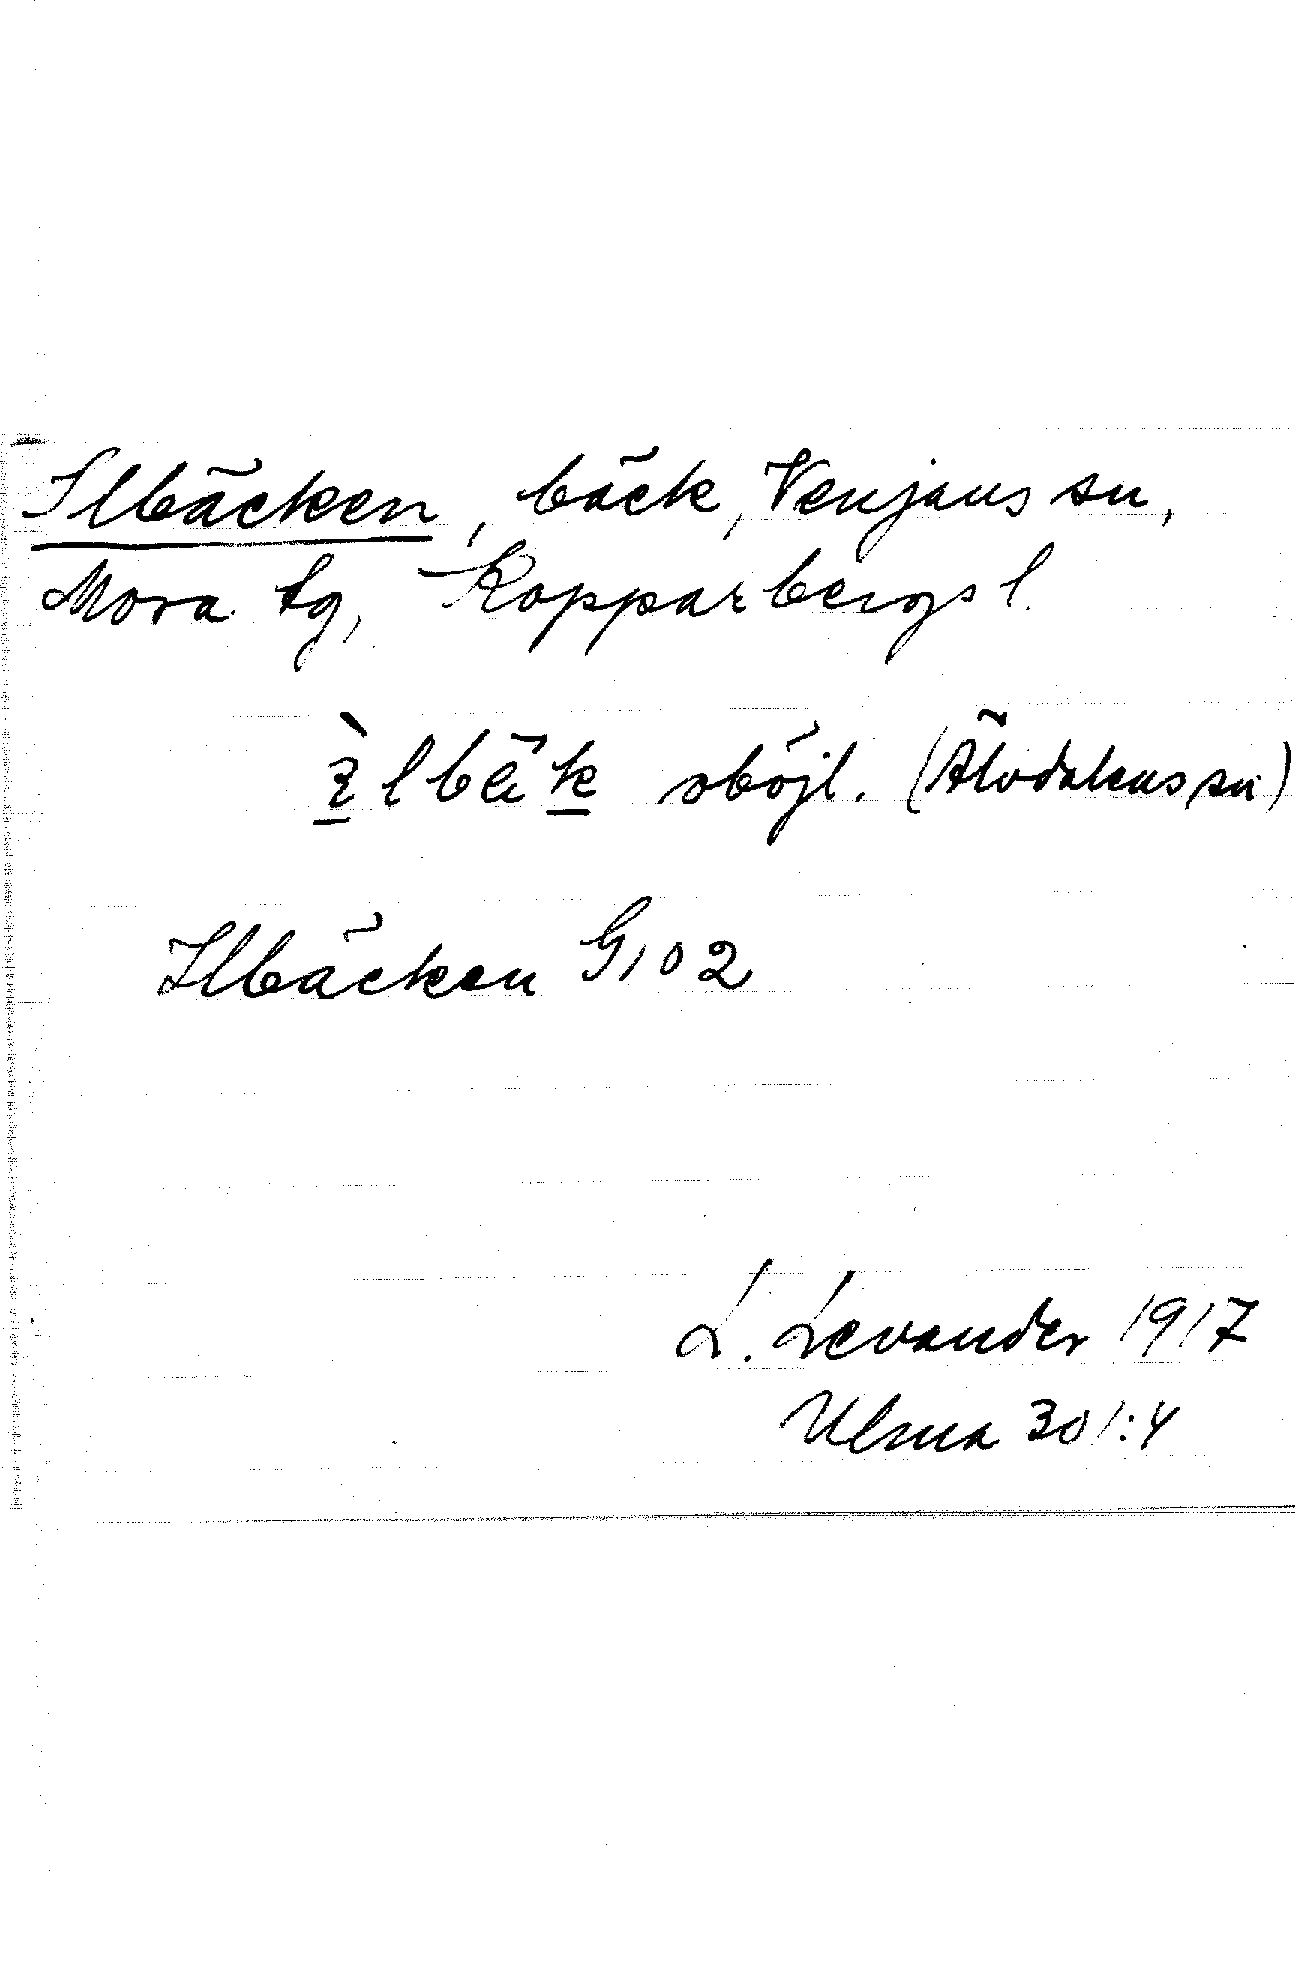 Ilbäcken, bäck, Venjans sn,
Mora tg, Kopparbergs l.
oböjl. (Älvdalens sn)
Ilbäcken G102
L. Levander 1917
Ulma 301:4